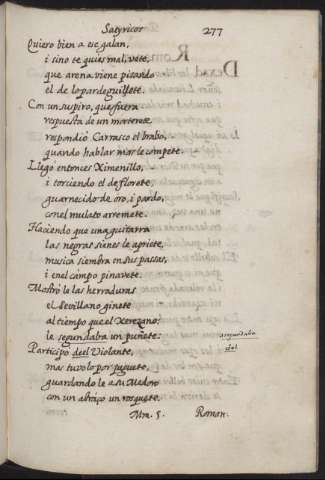 Satyricos 277
Quiero bien a ese galan,
i sino te quies mal, vete,
que arena viene pisando
el de lo pardeguillete.
Con un suspiro, que fuera
respuesta de un mosquete
respondiò Carrasco el brabo,
quando hablar mas le compete.
Llegó entonces Ximenillo,
i torciendo el de florete,
guarnecido de oro, i pardo,
con el mulato arremete.
Haciendo que una guitarra
las negras sienes le apriete,
musica siembra en sus passas,
i en el campo pinavete.
Mostró le las herraduras
el Sevillano ginete
al tiempo que el Xerezano
le segundaba un puñete.
assegundaba
Participo deel Violante,
del
mas tuvolo por juguete,
guardandole a su Medoro
con un abraço un rosquete.
Mm. 5. Roman.